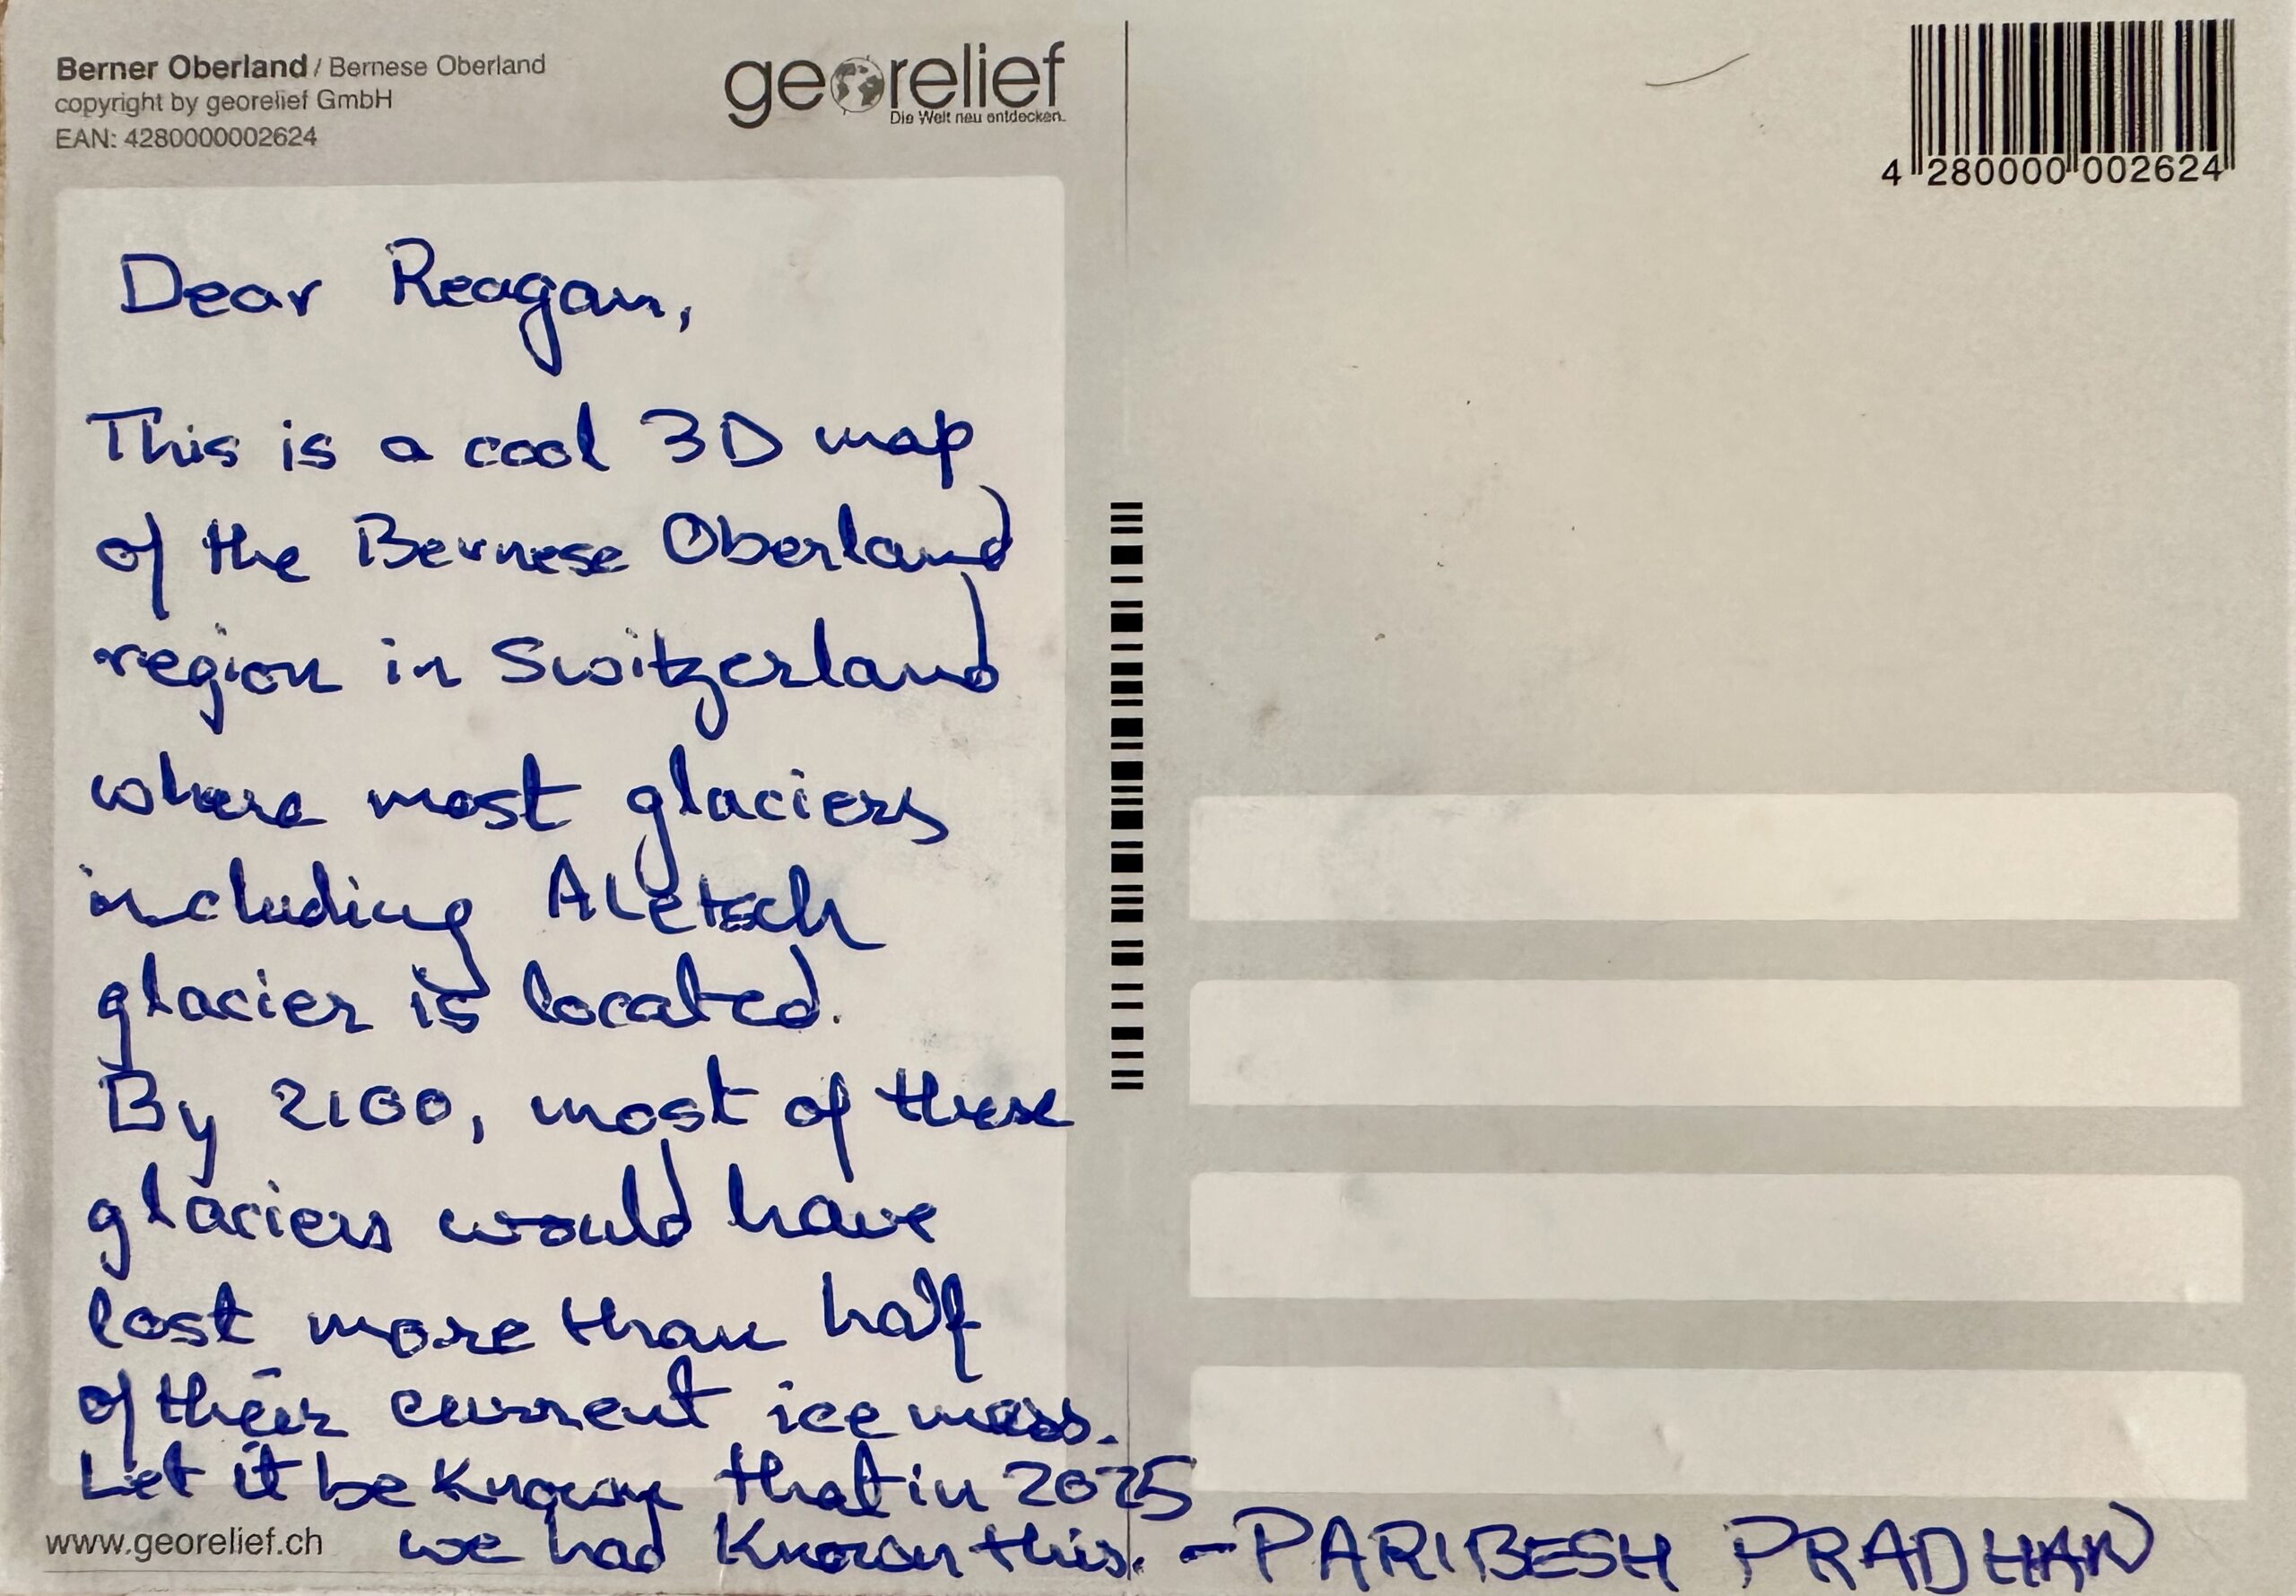 Berner Oberland / Bernese Oberland
copyright by georelief GmbH
EAN: 4280000002624
georelief
Die Welt neu entdecken.
4 280000 002624
Dear Reagan,
This is a cool 3D map
of the Bernese Oberland
region in Switzerland
where most glaciers
including Aletsch
glacier is located.
By 2100, most of these
glaciers would have
lost more than half
of their current ice mass.
Let it be known that in 2025
we had known this. - PARIBESH PRADHAN
www.georelief.ch